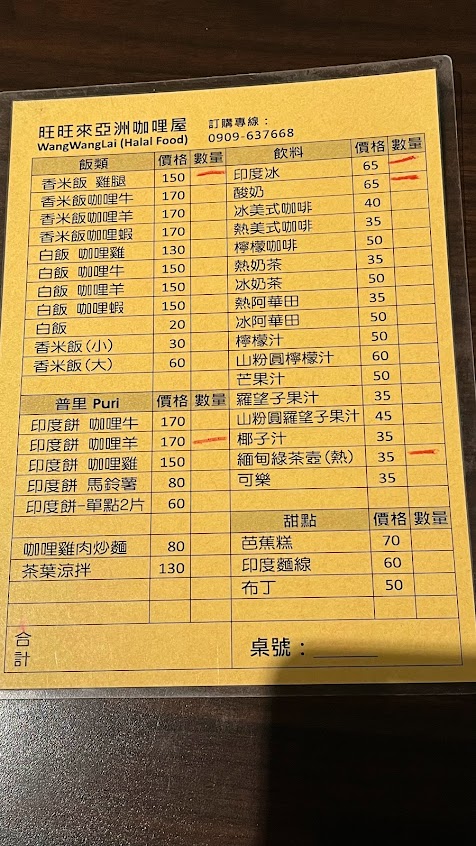 旺旺來亞洲咖哩屋
WangWangLai (Halal Food)
訂購專線：
0909-637668
飯類 價格 數量
香米飯 雞腿 150
香米飯咖哩牛 170
香米飯咖哩羊 170
香米飯咖哩蝦 170
白飯 咖哩雞 130
白飯 咖哩牛 150
白飯 咖哩羊 150
白飯 咖哩蝦 150
白飯 20
香米飯(小) 30
香米飯(大) 60
普里 Puri 價格 數量
印度餅 咖哩牛 170
印度餅 咖哩羊 170
印度餅 咖哩雞 150
印度餅 馬鈴薯 80
印度餅-單點2片 60
咖哩雞肉炒麵 80
茶葉涼拌 130
合計
飲料 價格 數量
印度冰 65
酸奶 65
冰美式咖啡 40
熱美式咖啡 35
檸檬咖啡 50
熱奶茶 35
冰奶茶 50
熱阿華田 35
冰阿華田 50
檸檬汁 50
山粉圓檸檬汁 60
芒果汁 50
羅望子果汁 35
山粉圓羅望子果汁 45
椰子汁 35
緬甸綠茶壺(熱) 35
可樂 35
甜點 價格 數量
芭蕉糕 70
印度麵線 60
布丁 50
桌號：